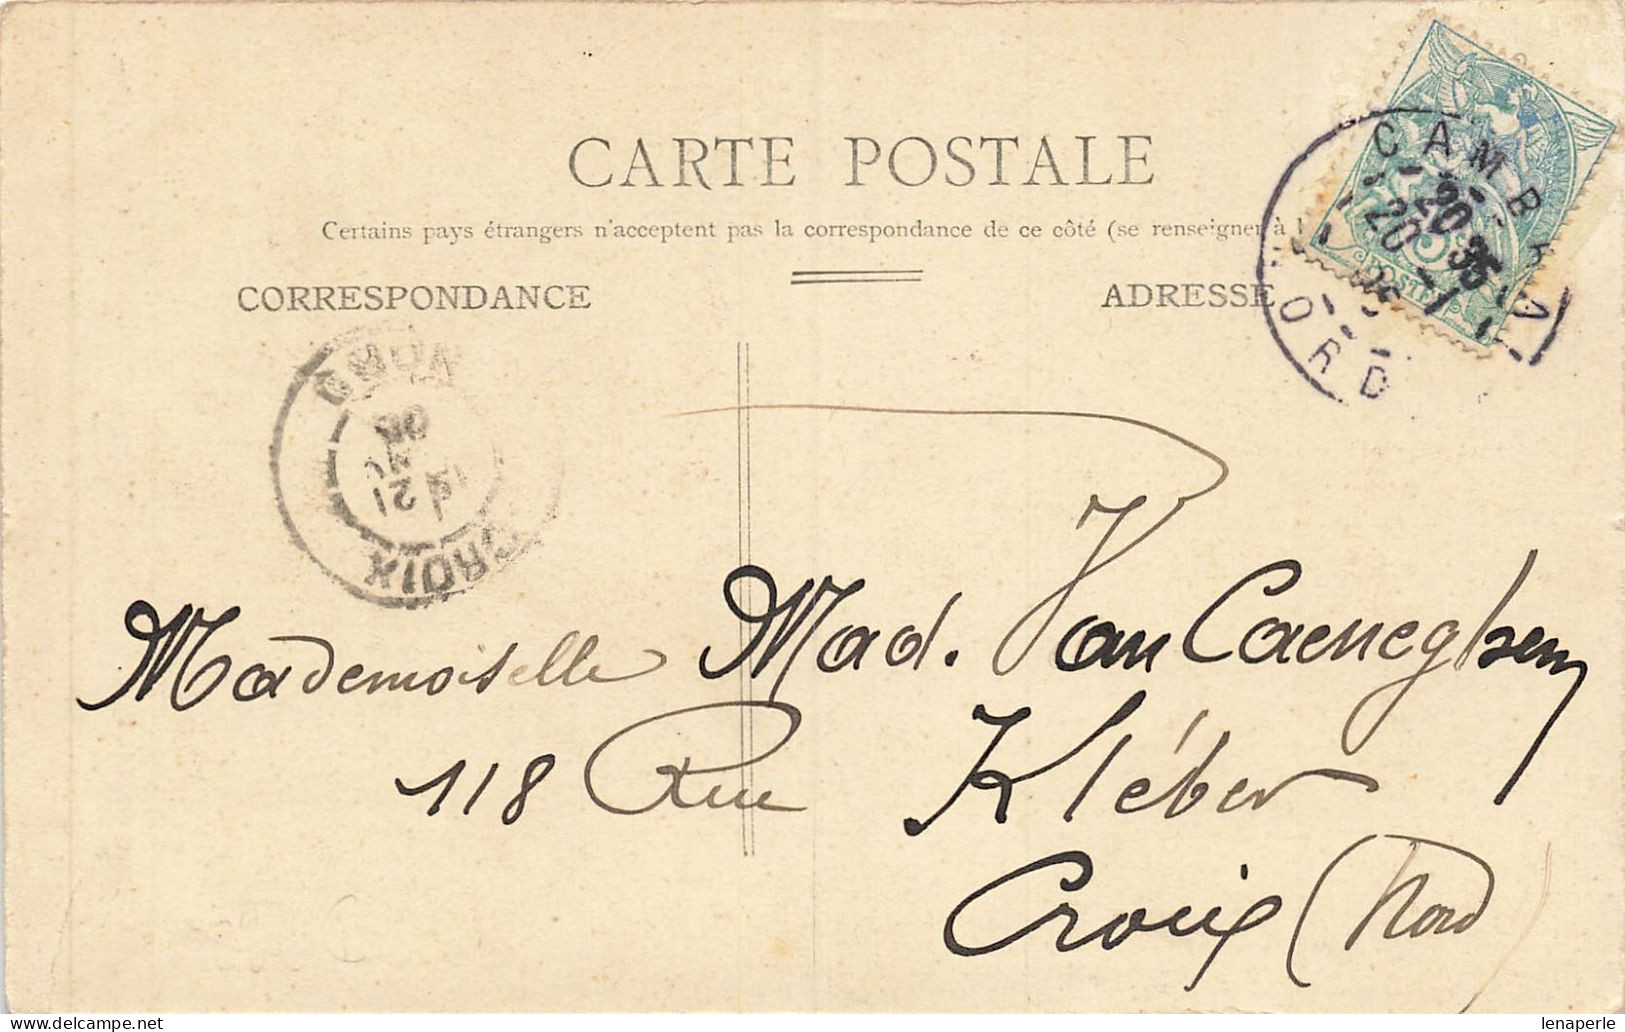 CARTE POSTALE
Certains pays étrangers n'acceptent pas la correspondance de ce côté (se renseigner à l
CORRESPONDANCE
ADRESSE
CAMBRAI
20 35
20 -1
NORD
POSTES
CROIX
NORD
21
06
Mademoiselle Mad. Van Caeneghem
118 Rue Kléber
Croix (Nord)
lenaperle